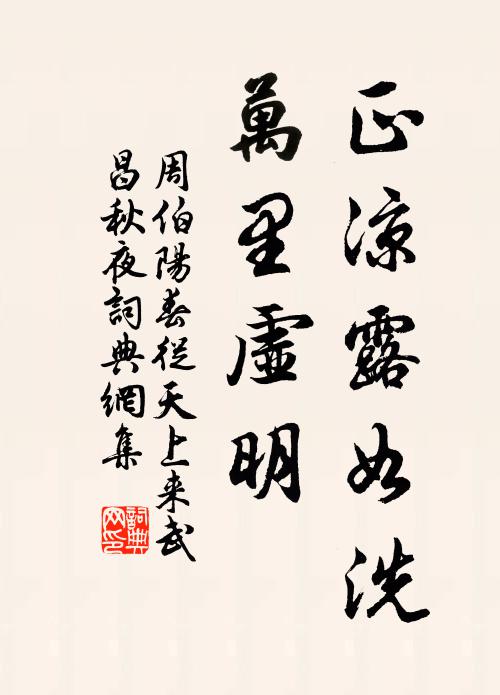 正涼露如洗
萬里虛明
周伯陽春從天上来武
昌秋夜詞典網集
詞典
网印